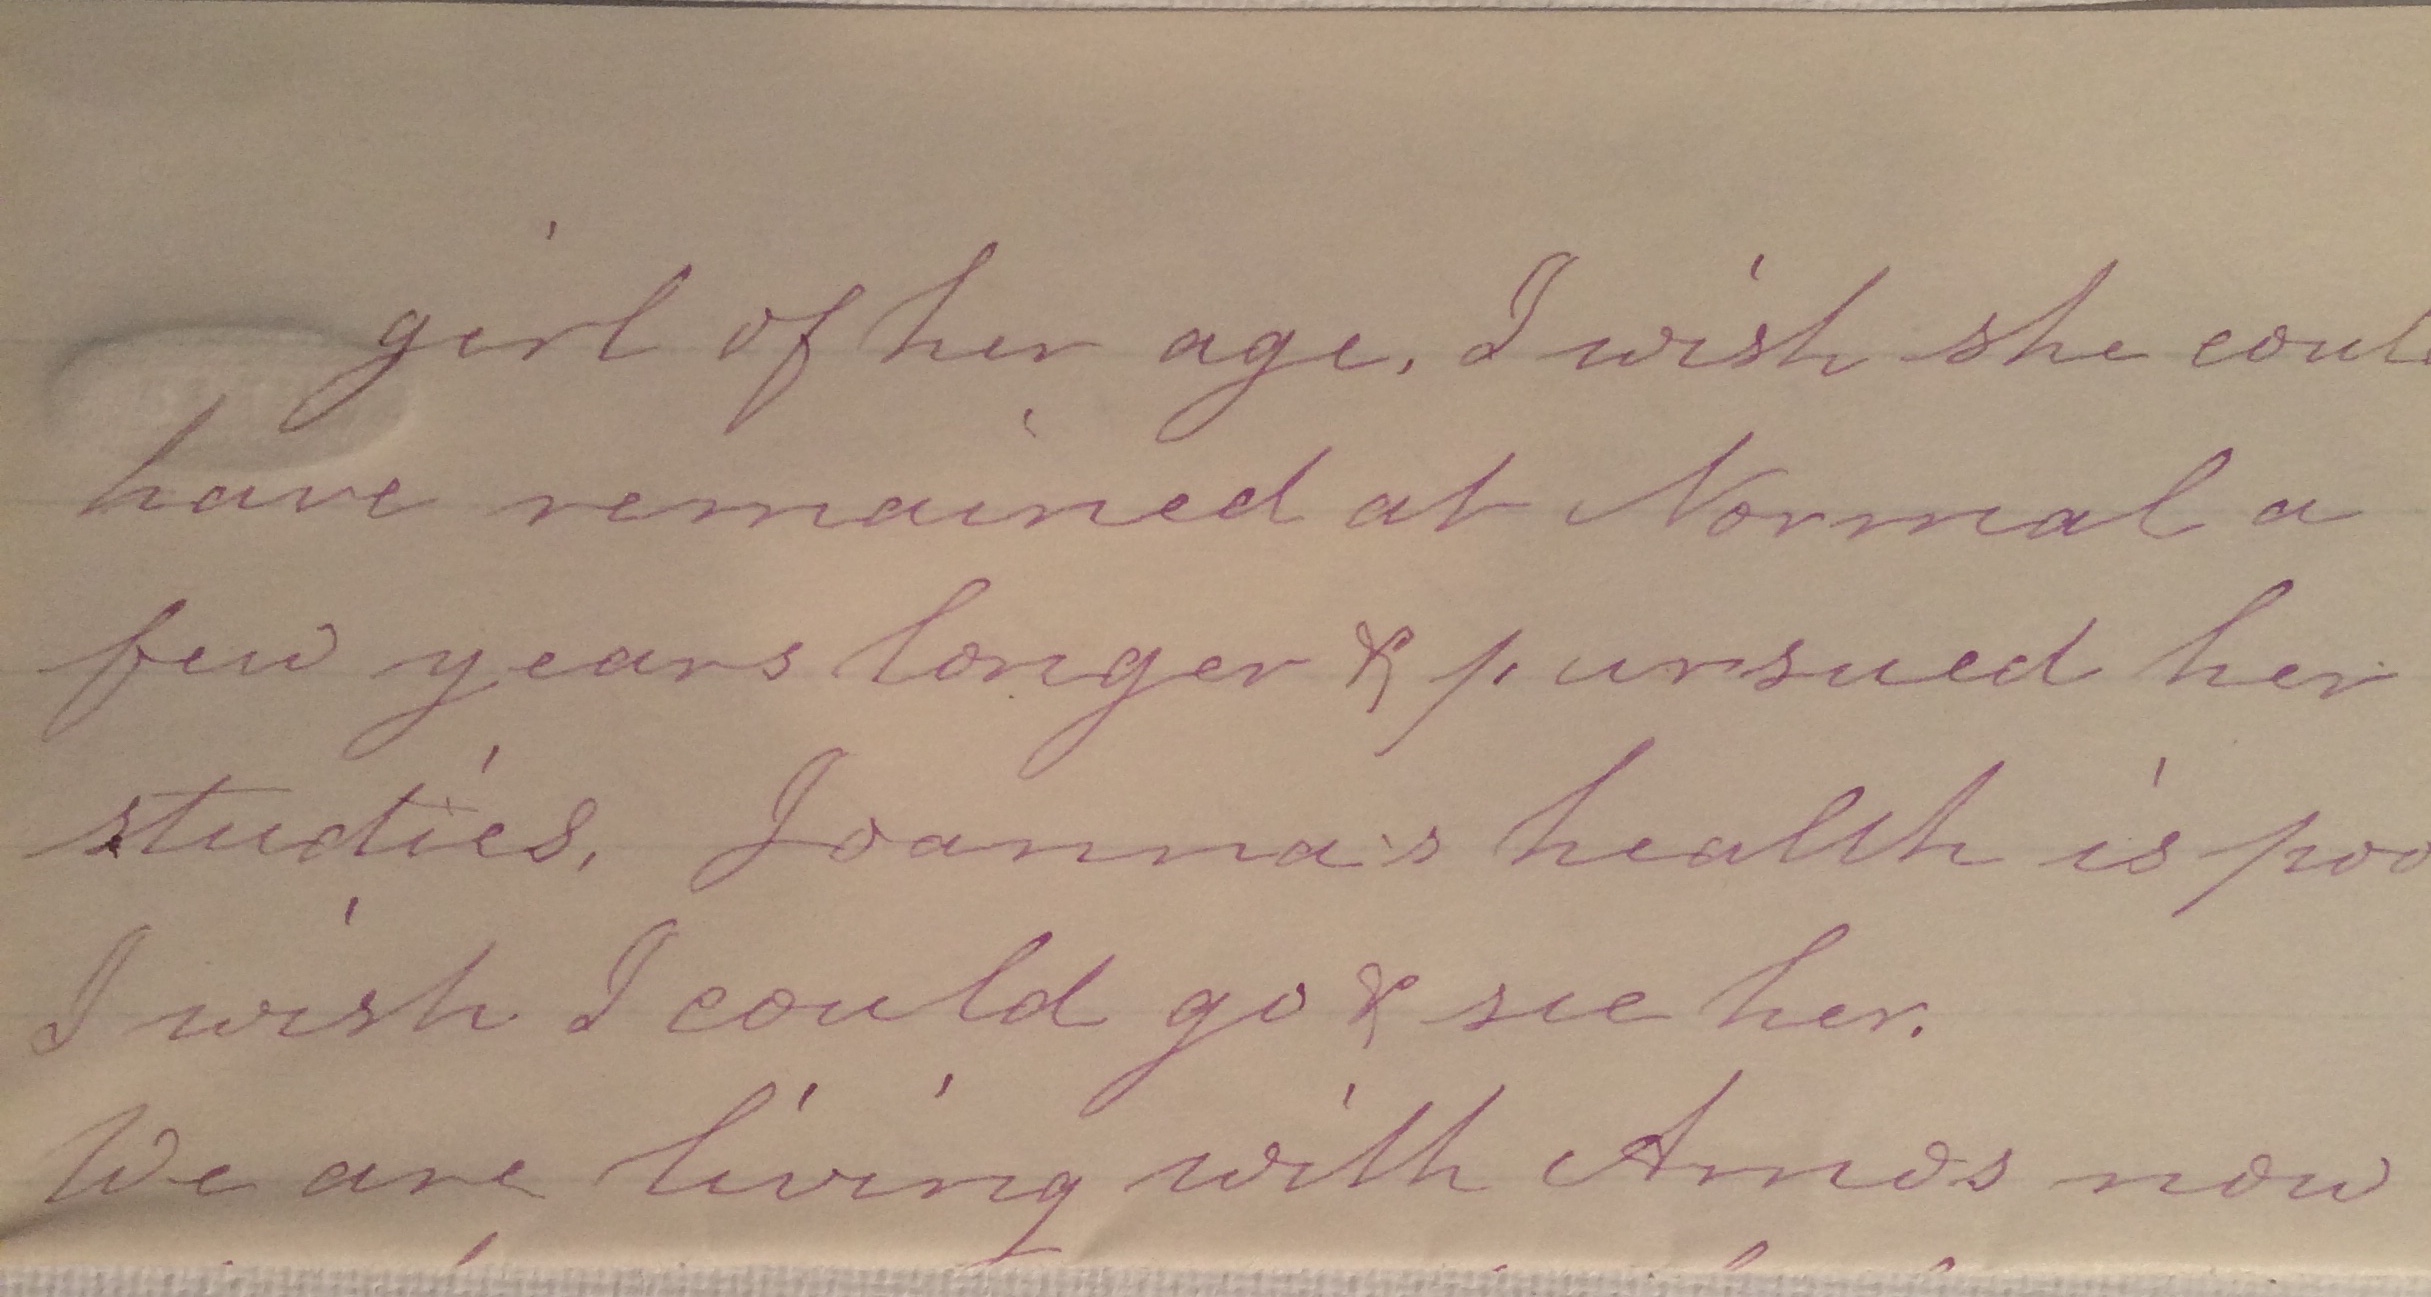 girl of her age. I wish she coul
have remained at Normal a
few years longer & pursued her
studies. Joanna's health is poo
I wish I could go & see her.
We are living with Amos now